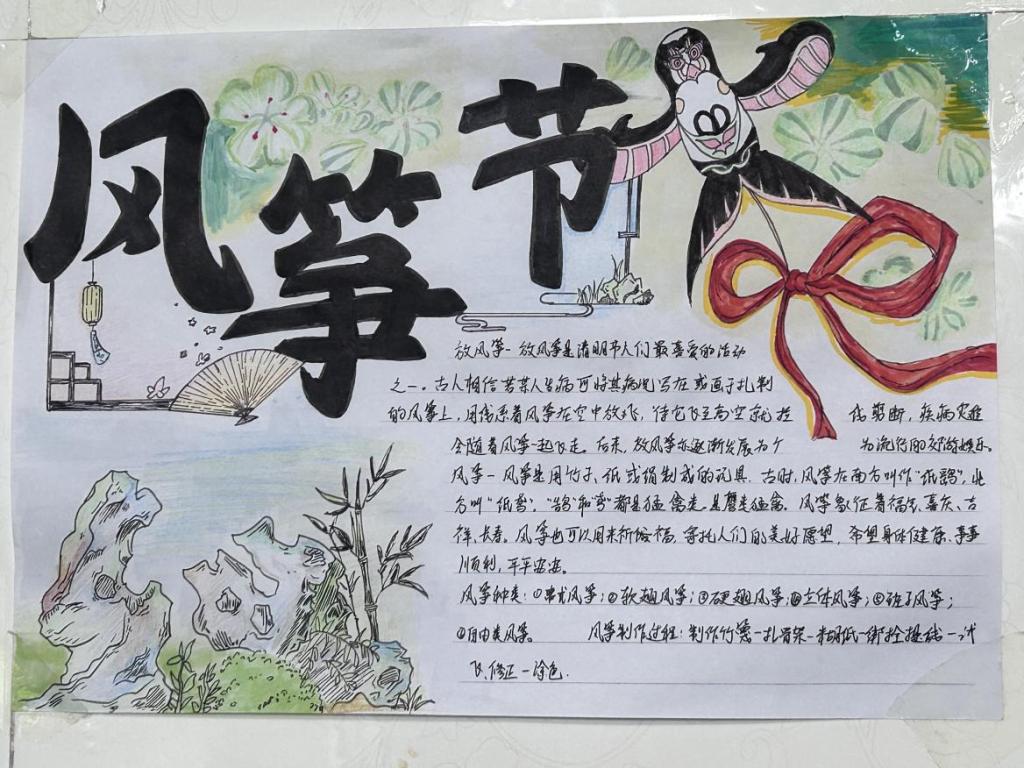 风筝节
放风筝-放风筝是清明节人们最喜爱的活动
之一。古人相信若某人生病可将其病况写在或画于扎制
的风筝上，用线系着风筝在空中放飞，待它飞至高空就把 线剪断，疾病灾难
会随着风筝一起飞走。后来，放风筝亦逐渐发展为个 为流行的郊游娱乐。
风筝-风筝是用竹子、纸或绢制成的玩具。古时，风筝在南方叫作"纸鹞"，北
方叫"纸鸢"。"鹞"和"鸢"都是猛禽类，是鹰类猛禽。风筝象征着福气、喜庆、吉
祥、长寿。风筝也可以用来祈福，寄托人们的美好愿望，希望身体健康、事事
顺利，平平安安。
风筝种类：①串式风筝；②软翅风筝；③硬翅风筝；④立体风筝；⑤板子风筝；
⑥自由类风筝。 风筝制作过程：制作竹篾-扎骨架-糊纸-绑拴提线-试
飞、修正-涂色.